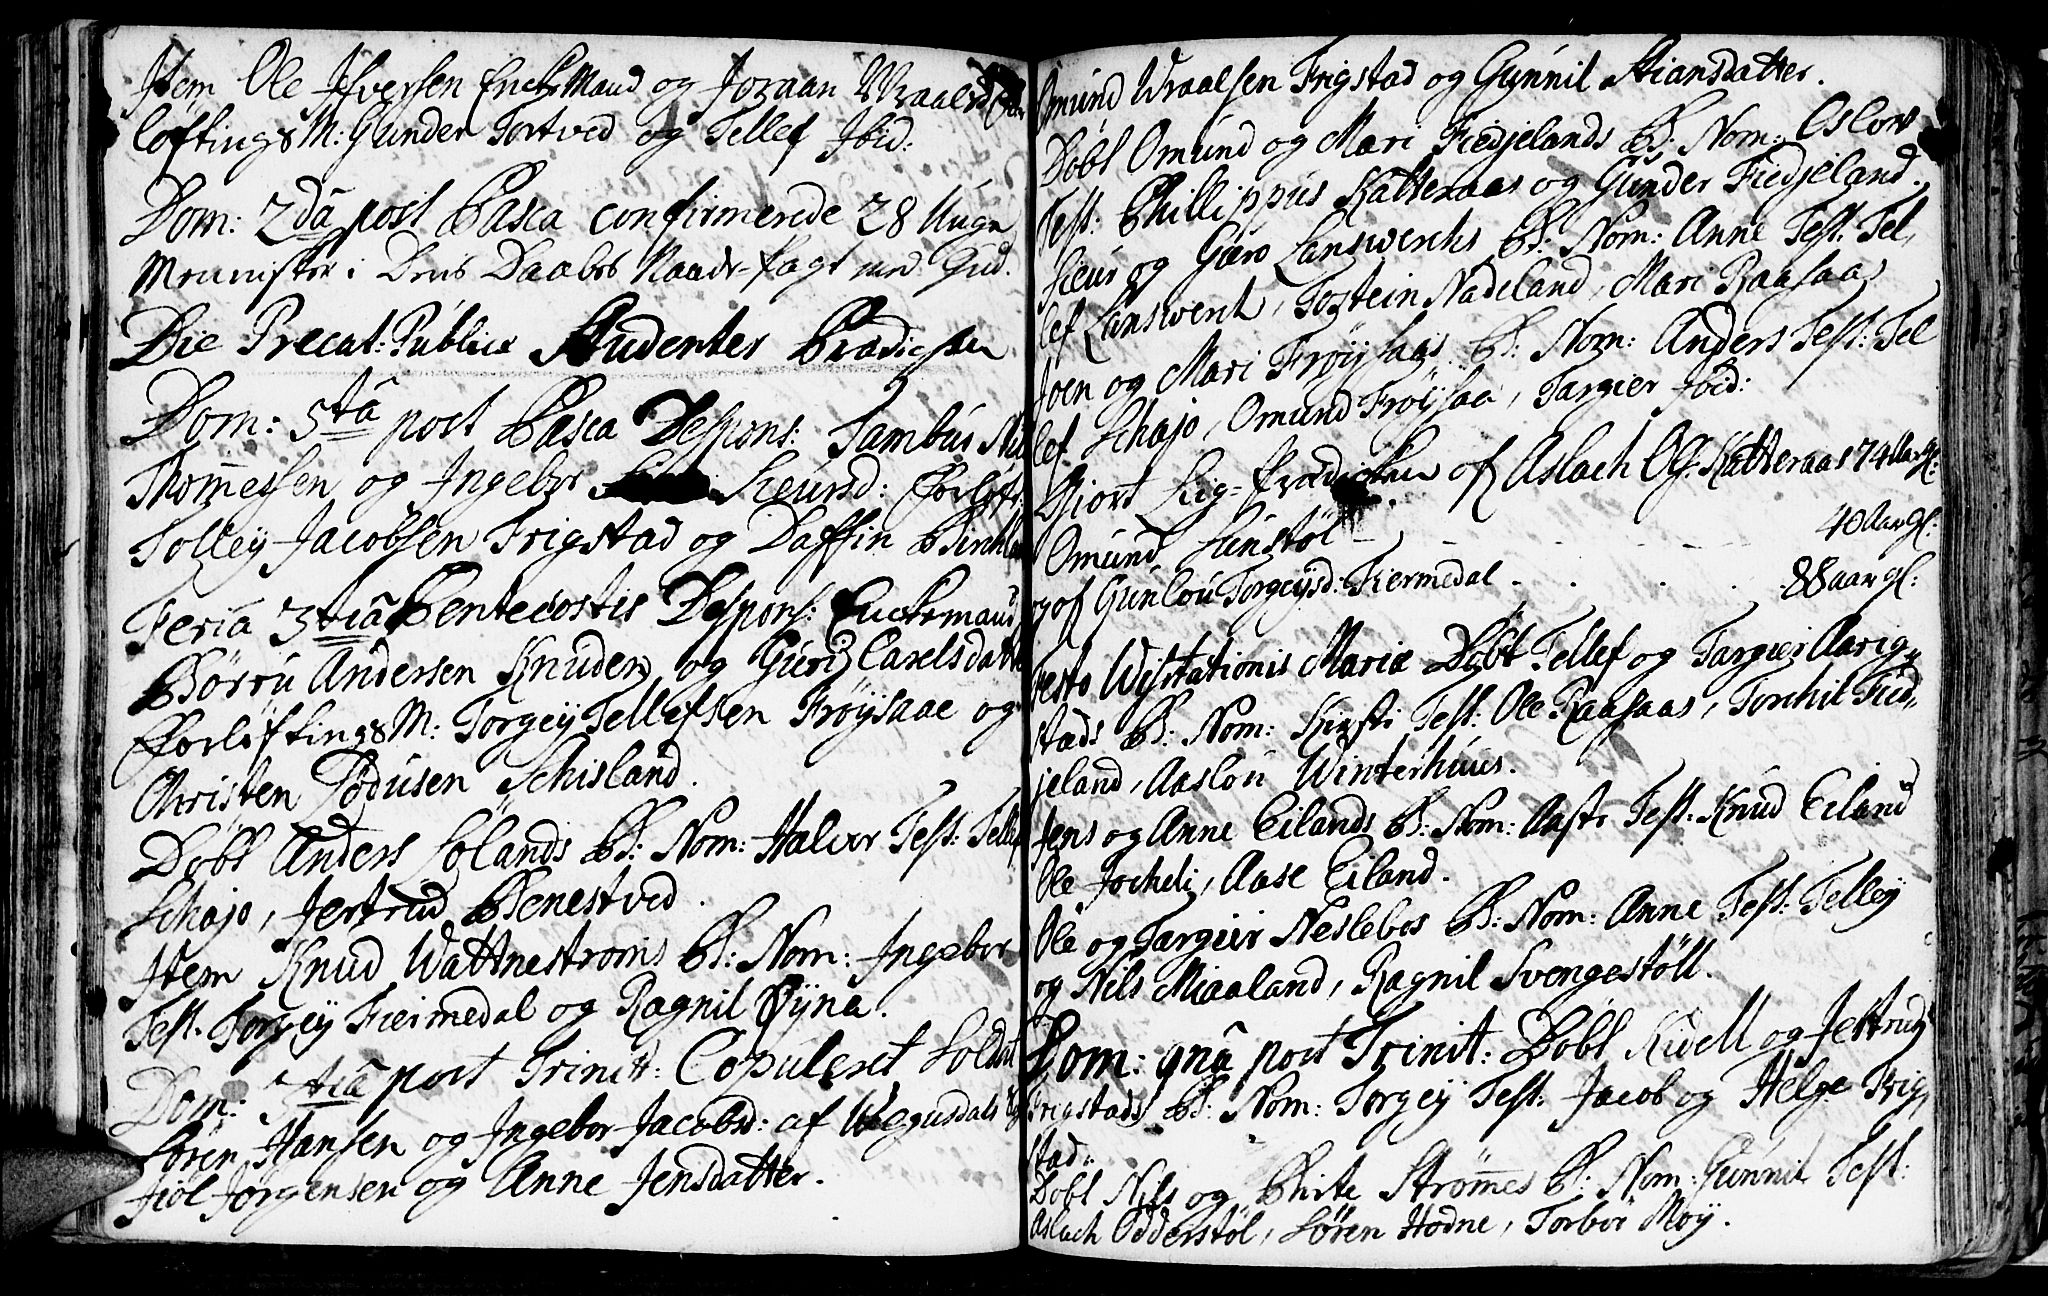 Item Ole Ifversen Enchemand og Joraan Wraalsd
løftings M: Gunder Tortved og Tellef Ibid:
Dom: 2dâ post Pasca confirmerede 28 Unge
Mennisker i Deris Daabes Naade-Pagt med Gud.
Die Precat: Publica Studenter Prædicken
Dom: 5tâ post Pasca Despons: Tambur Nil
Thommesen og Ingebor Sieursd: Forløft:
Tolley Jacobsen Frigstad og Daffin
Feria 3tiâ Pentecostis Despons: Enchemand
Børru Andersen Knuden og Guri Carelsdatter
Forløftings M: Torgey Tellefsen Frøysaae og
Christen Pedusen Schisland.
Døbt Anders Solands B: Nom: Halvor Test: Tellef
Schajo, Jertrud Benestved.
Item Knud Wattnestrøms B: Nom: Ingebor
Test. Torgey Fiermedal og Ragnil Øyna.
Dom: 3tiâ post Trinit: Copuleret Soldat
Søren Hansen og Ingebor Jacobsd: af Wegusdals
Jørgensen og Anne Jensdatter.
Omund Wraalsen Frigstad og Gunnil Stiansdatter.
Døbt Omund og Mari Fiedjelands B: Nom: Oslow
Test: Phillippus Katteraas og Gunder Fiedjeland.
Sieur og Guro Lanswerks B: Nom: Anne Test: Tel,
lef Lanswerk, Tostein Nadeland, Mari Raasaas
Joen og Mari Frøysaas B: Nom: Anders Test: Tel
lef Schajo, Omund Frøysaa, Targier Ibid:
Giort Lig-Prædicken of Aslach Ols: Katteraas 74 Aar gl:
Omund Lunstøl - - - - - 40 Aar gl:
og of Gunlou Torgeysd: Fiermedal . . . . 88 aar gl:
Festo Wisitationis Mariæ Døbt Tellef og Targier Aarig,
stads B: Nom: Kirsti Test: Ole Raasaas, Torchil Fied,
jeland, Aaslou Winterhuus.
Jens og Anne Eilands B: Nom: Aaste Test: Knud Eiland
Ole Jocheli, Aase Eiland.
Ole og Targier Neslebos B: Nom: Anne Test: Telley
og Nils Miaaland, Ragnil Svengestöll.
Dom: 9nâ post Trinit: Døbt Kidell og Jertrud
Frigstads B: Nom: Torgey Test: Jacob og Helge Frig,
stad.
Døbt Nils og Birte Strømmes B: Nom: Gunnil Test:
Aslach Odderstøl, Søren Hodne, Torbor Moy.